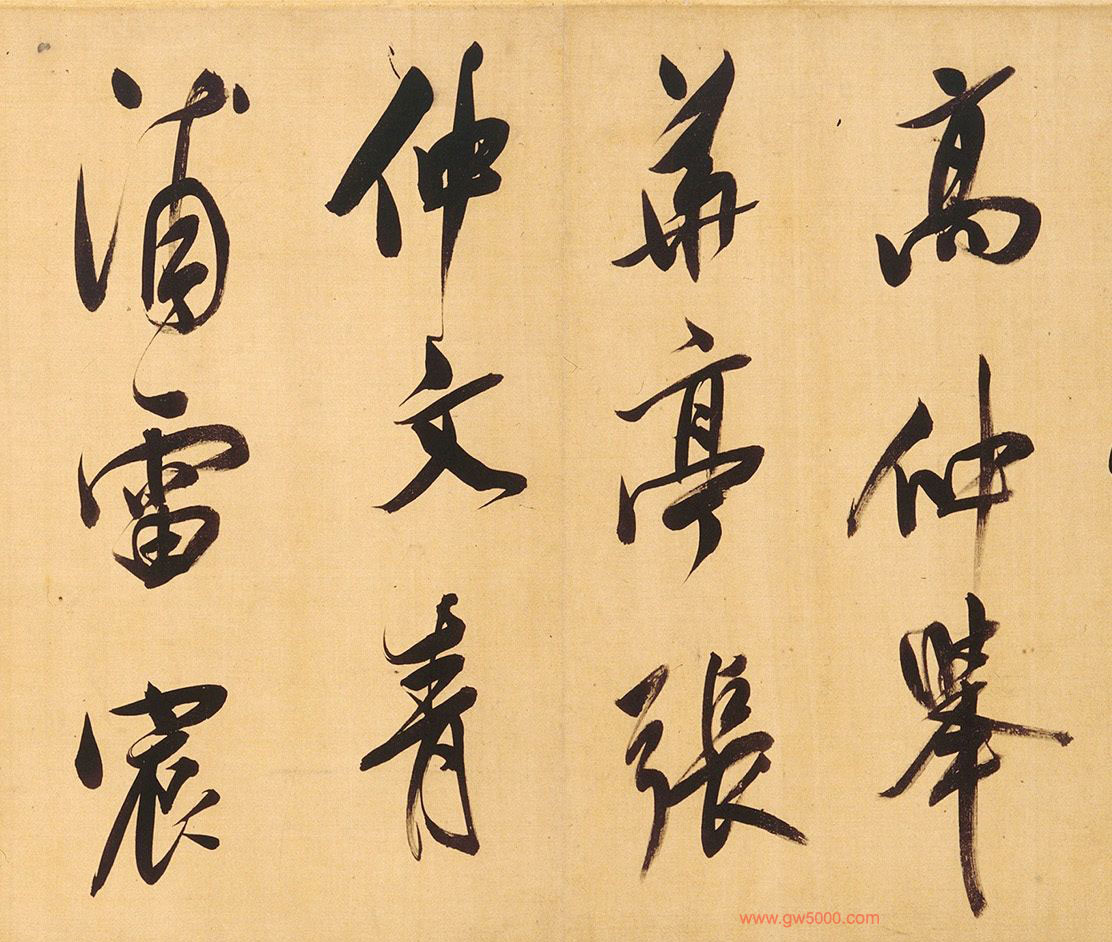 高仲舉
華亭張
仲文青
浦雷宸
www.gw5000.com